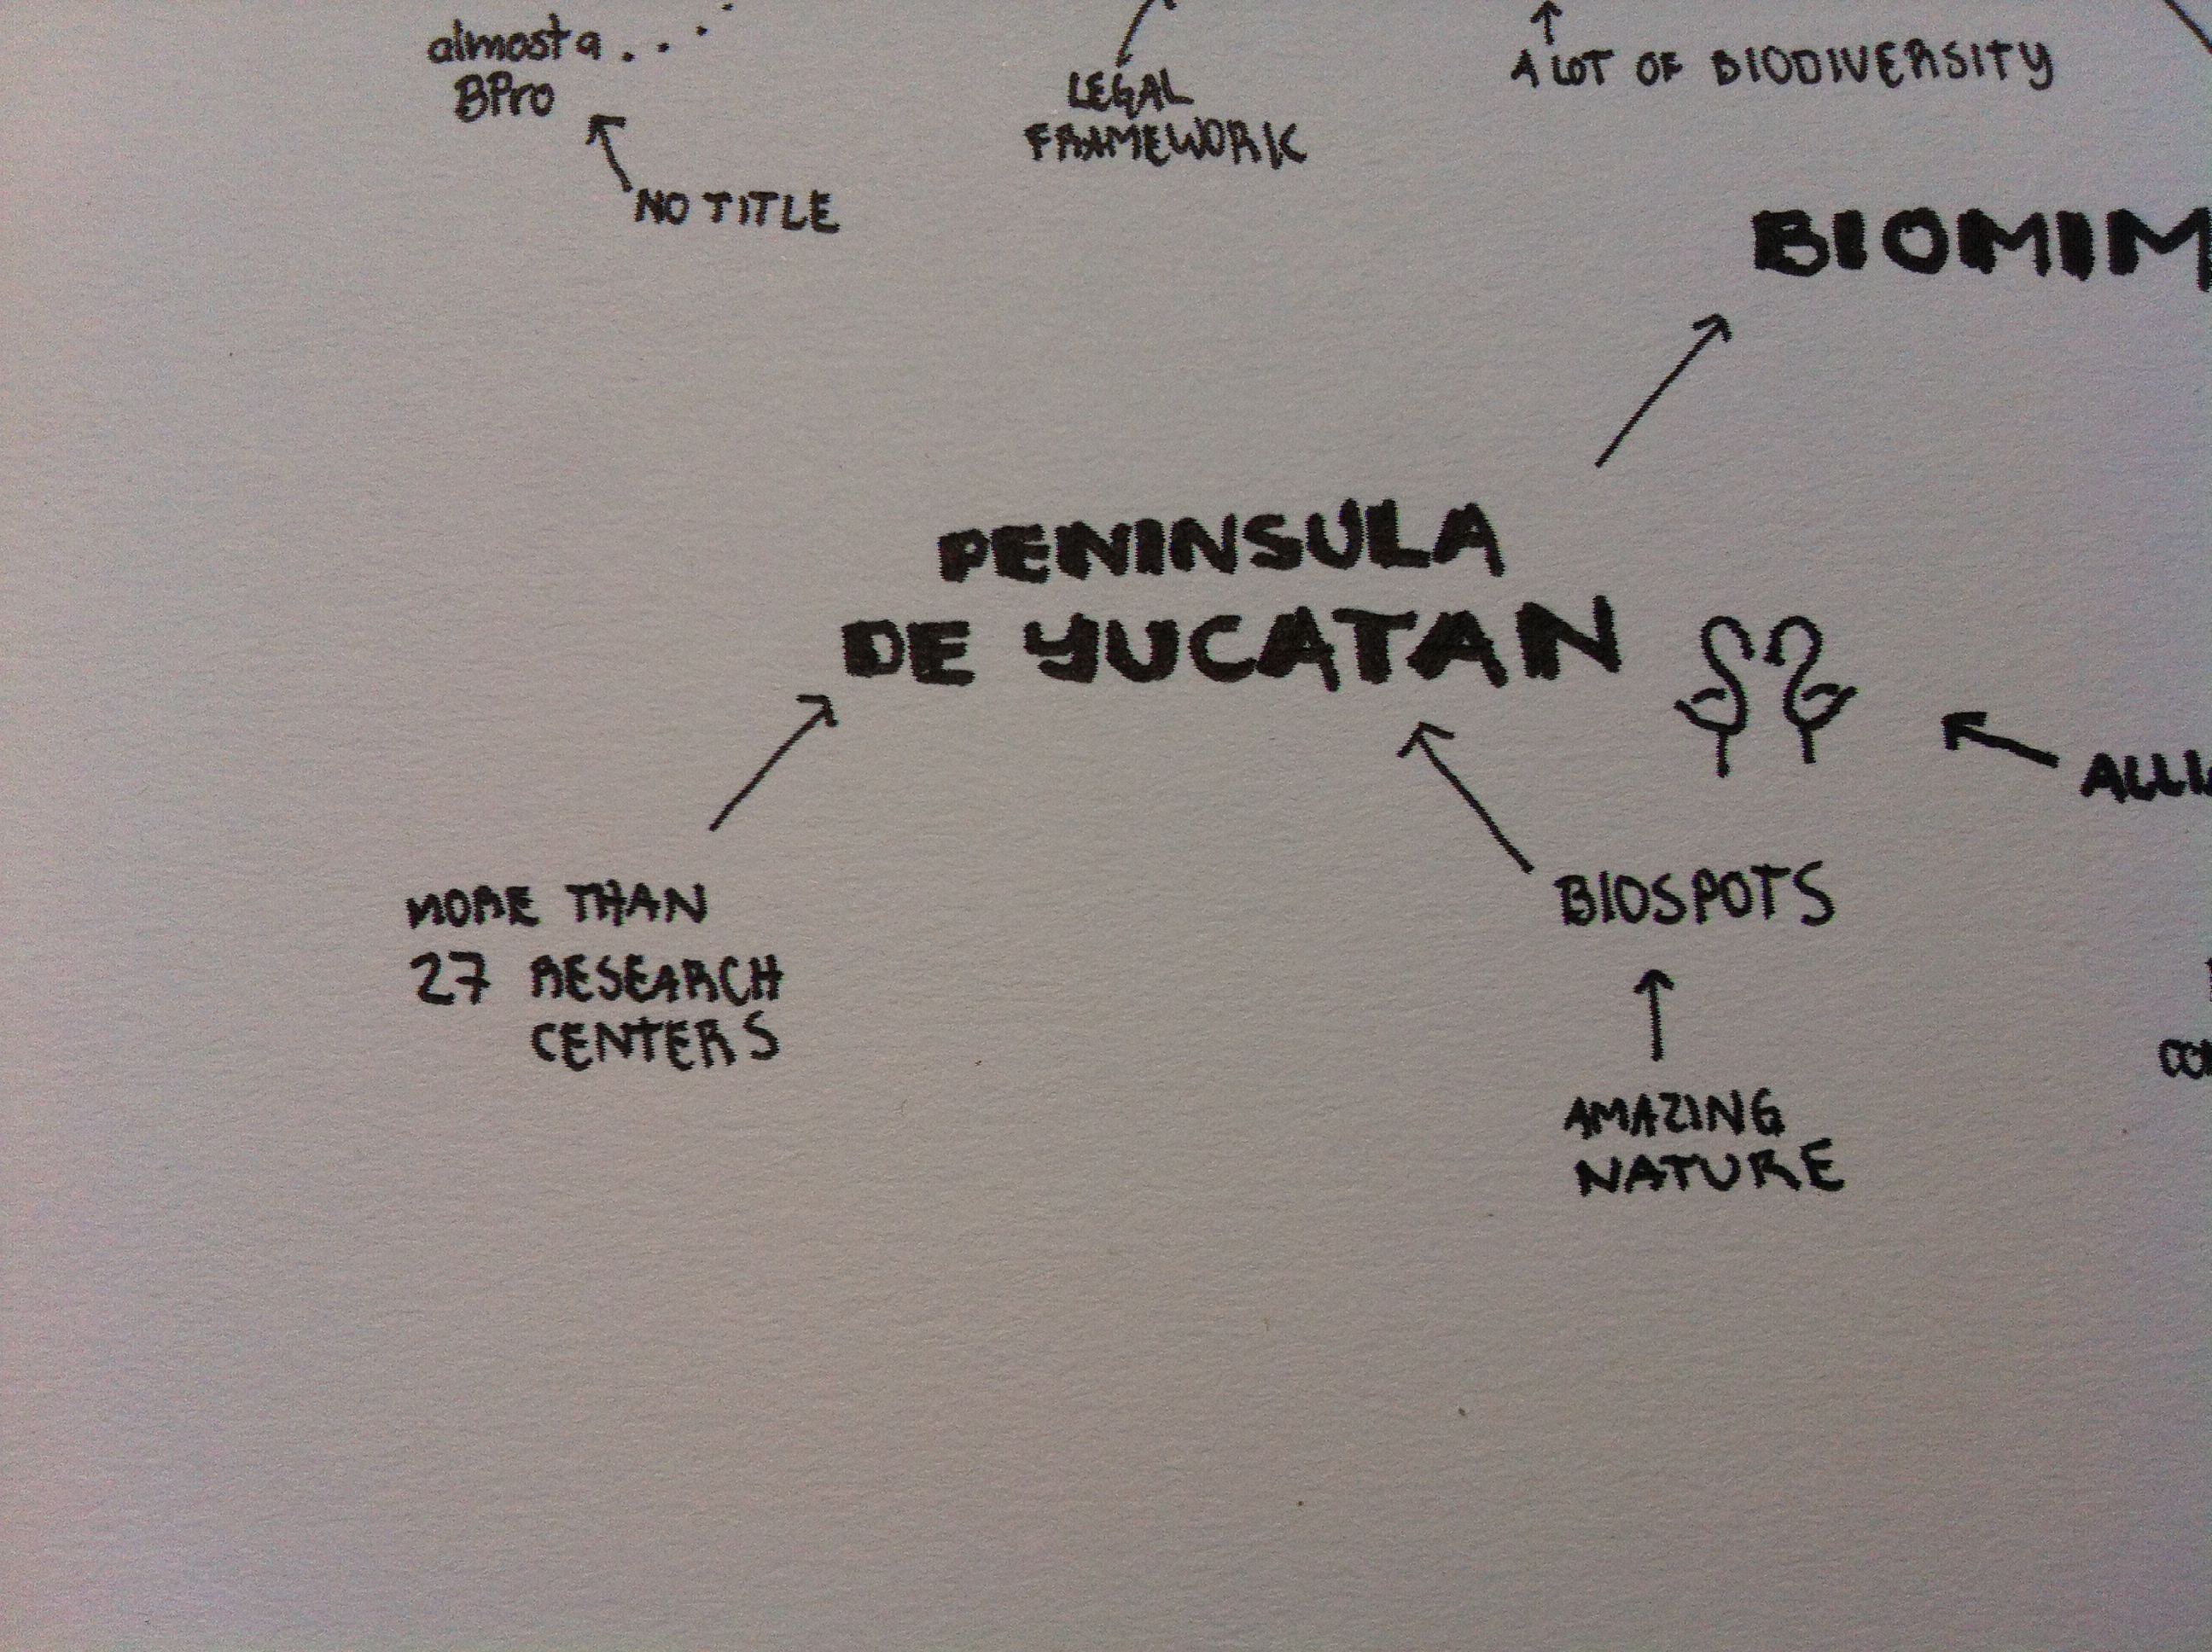 almost a...
BPro
NO TITLE
LEGAL
FRAMEWORK
A LOT OF BIODIVERSITY
BIOMIM
PENINSULA
DE YUCATAN
ALLI
MORE THAN
27 RESEARCH
CENTERS
BIOSPOTS
AMAZING
NATURE